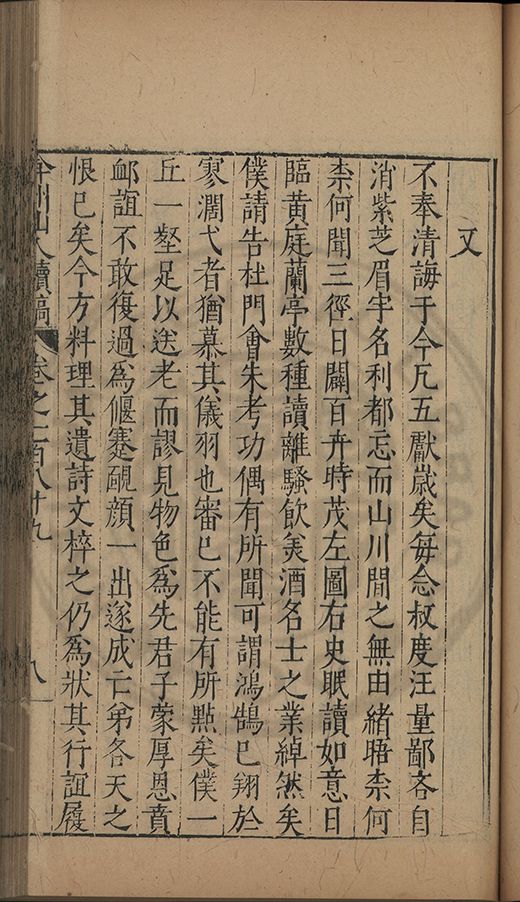 又
不奉清誨于今凡五獻歲矣每念叔度汪量鄙吝自
消紫芝眉宇名利都忘而山川間之無由緒晤柰何
柰何聞三徑日闢百卉時茂左圖右史眠讀如意日
臨黃庭蘭亭數種讀離騷飲羙酒名士之業綽然矣
僕請告杜門會朱考功偶有所聞可謂鴻鵠已翔於
寥濶弋者猶慕其儀羽也審已不能有所點矣僕一
丘一壑足以送老而謬見物色為先君子蒙厚恩賁
卹誼不敢復過為偃蹇靦顔一出遂成亡弟各天之
恨已矣今方料理其遺詩文梓之仍為狀其行誼履
弇州山人續稿 卷之一百八十九 八